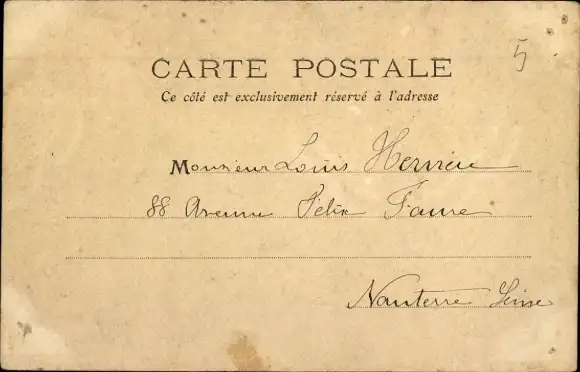 5
CARTE POSTALE
Ce côté est exclusivement réservé à l'adresse
Monsieur Louis
88 Avenue Félix Faure
Nanterre Seine